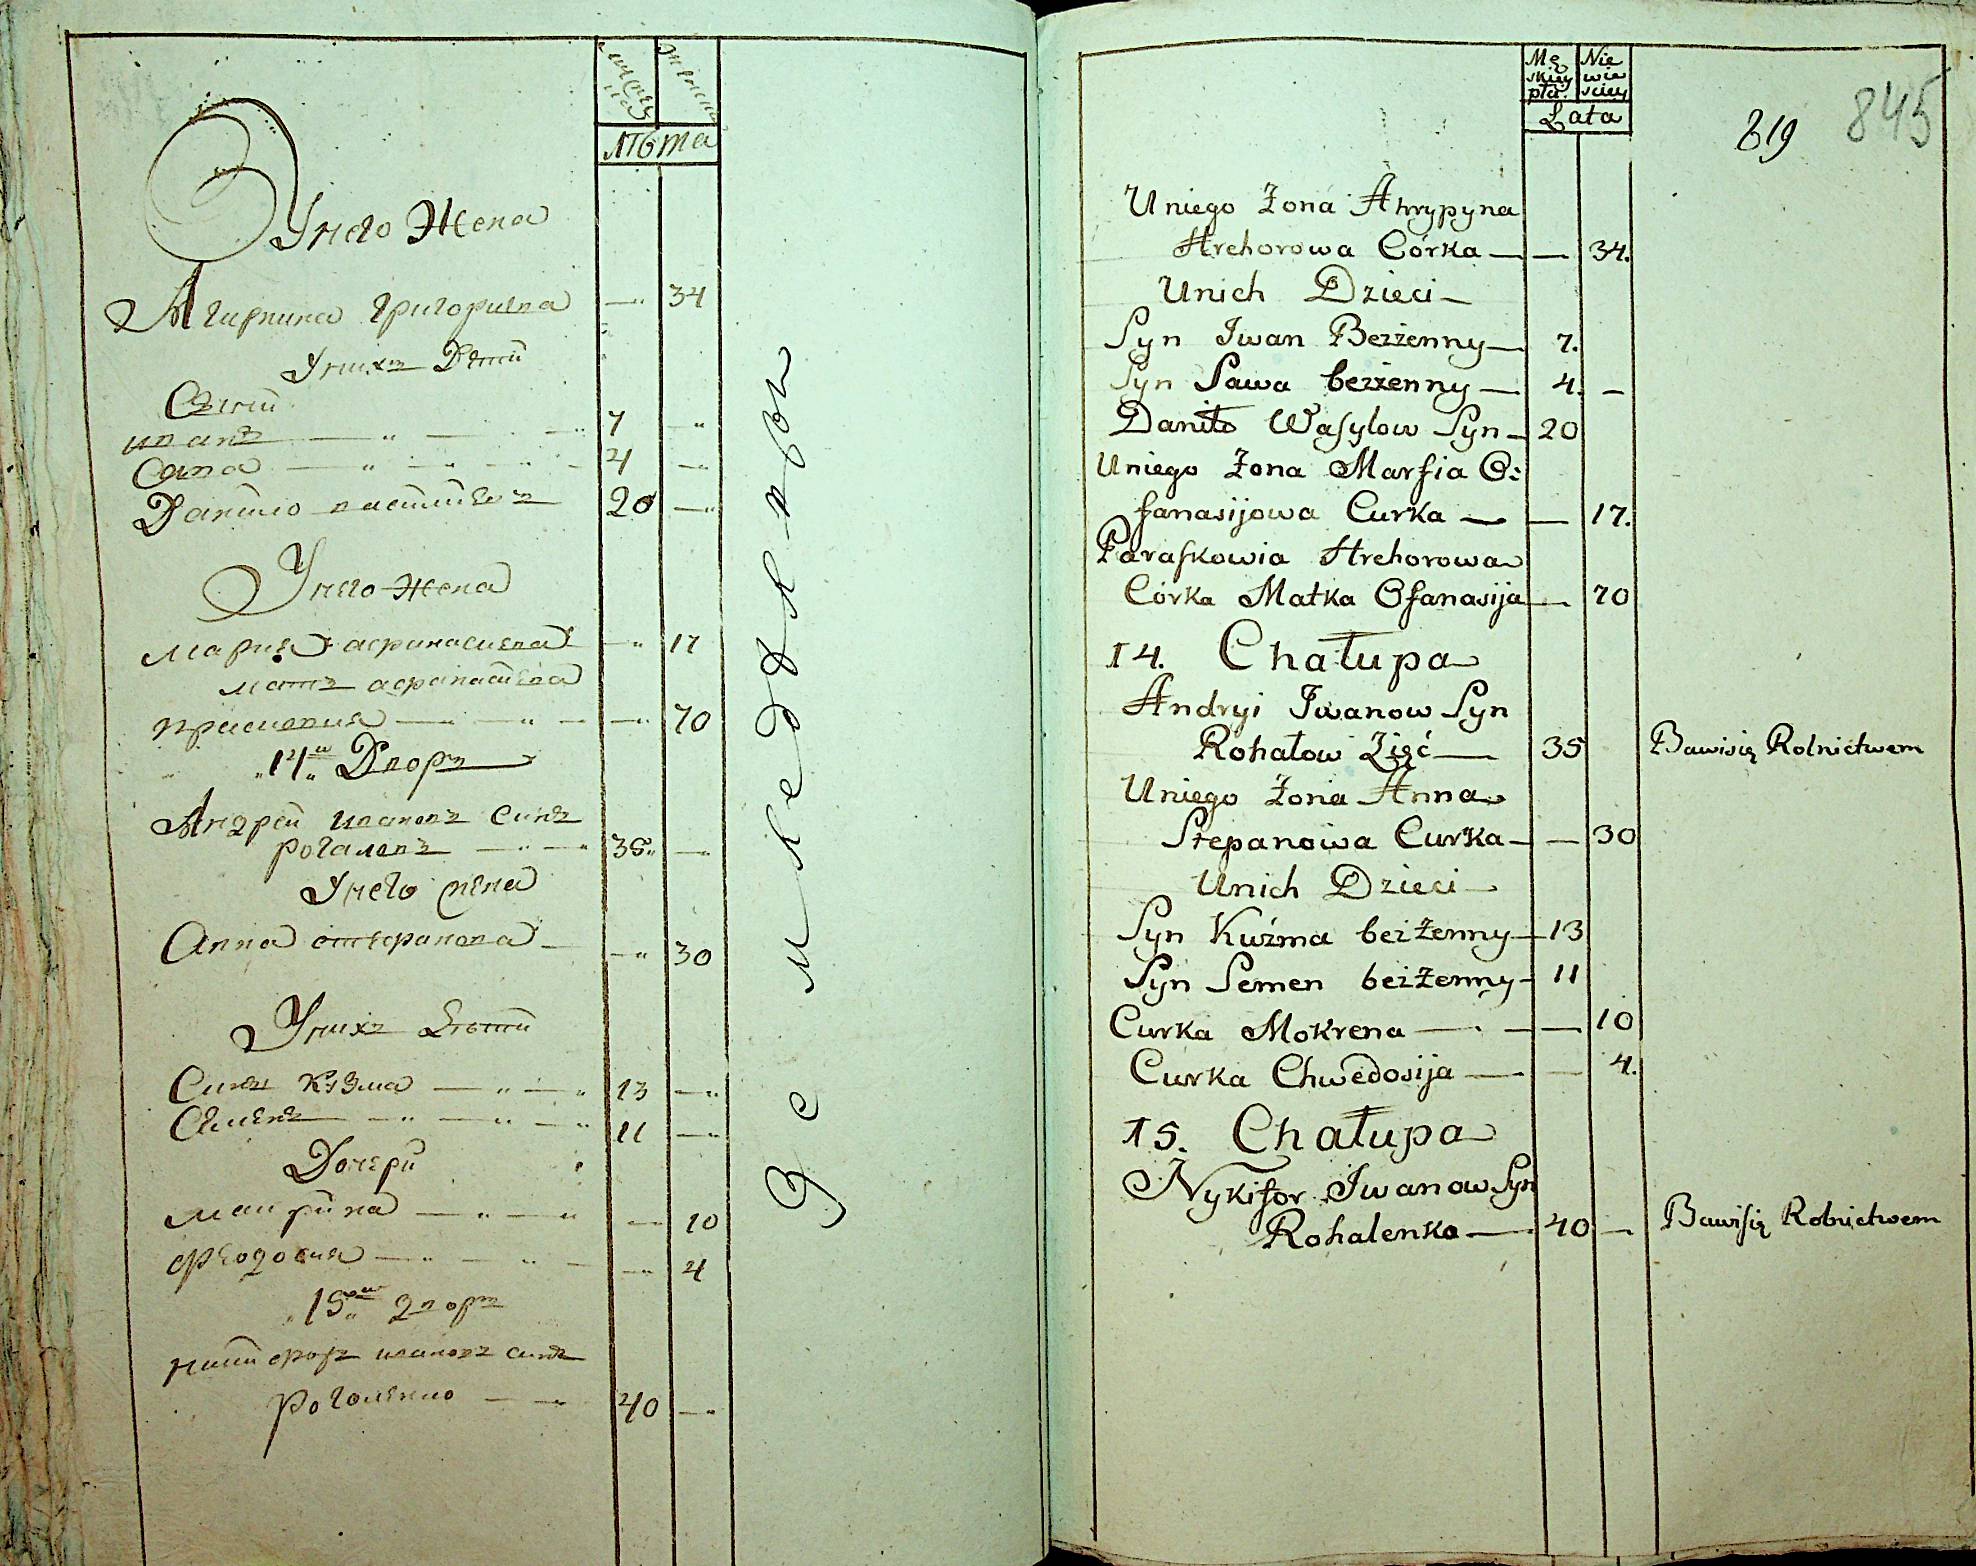 мужеска
женска
лѣта
У него Жена
Агирпина григориева — 34
У нихъ Дѣти
Сыни
иванъ — 7 —
Сава — 4 —
Данило василиевъ 20 —
У него жена
мария афанасиева — 17
мать афанасиева
прасковия — 70
14й Дворъ
Андрей ивановъ синъ
рогаловъ — 35 —
У него жена
Анна стефанова — 30
У нихъ дѣти
Сини кузма — 13 —
Семенъ — 11 —
Дочери
Маврина — 10
феодосия — 4
15й дворъ
никифоръ ивановъ синъ
роголенко — 40 —
Mę Nie
skiey wie
płci. sciey
Lata
819
845
Uniego Żona Ahrypyna
Hrehorowa Córka — — 34.
Unich Dzieci —
Syn Iwan Bezżenny — 7.
Syn Sawa bezżenny — 4. —
Daniło Wasylow Syn — 20
Uniego Żona Marfia O:
fanasijowa Curka — — 17.
Paraskowia Hrehorowa
Córka Matka Ofanasija — 70
14. Chałupa
Andryi Iwanow Syn
Rohałow Zięć — 35 Bawisię Rolnictwem
Uniego Żona Anna
Stepanowa Curka — — 30
Unich Dzieci —
Syn Kuźma beżżenny — 13
Syn Semen beżżenny — 11
Curka Mokrena — — 10
Curka Chwedosija — — 4.
15. Chałupa
Nykifor Iwanow Syn
Rohalenko — 40 — Bawisię Rolnictwem